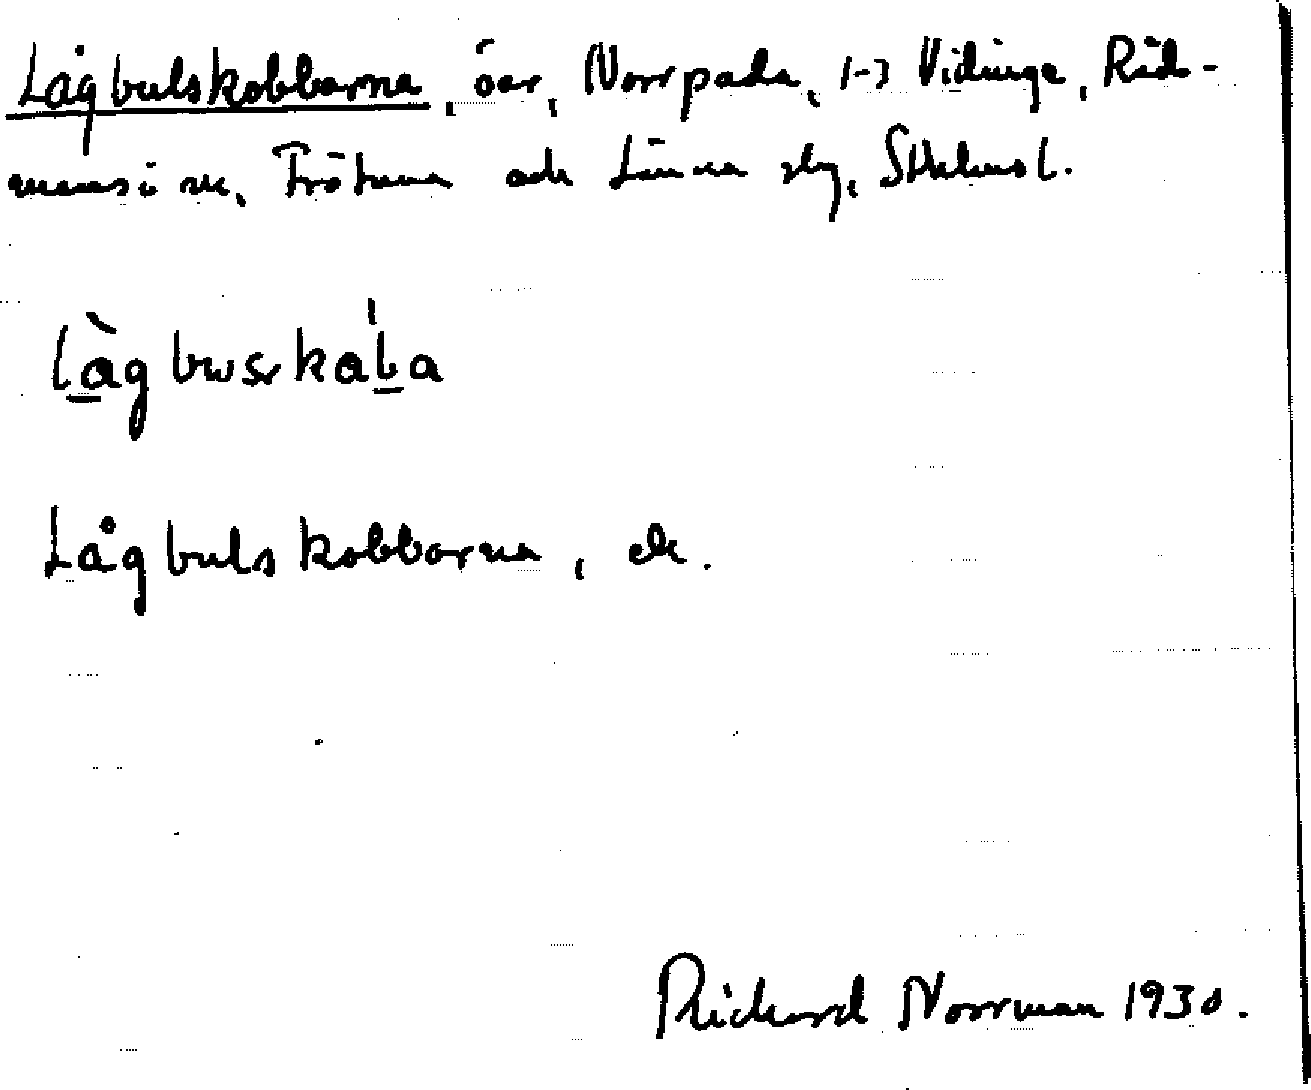 Lågbulskobbarna, öar, Norrpada, (-) Vidinge, Råd-
mansö sn, Frötuna och Länna slg, Sthlms l.
làgbuskàba
Lågbulskobbarna, ek.
Rickard Norrman 1930.